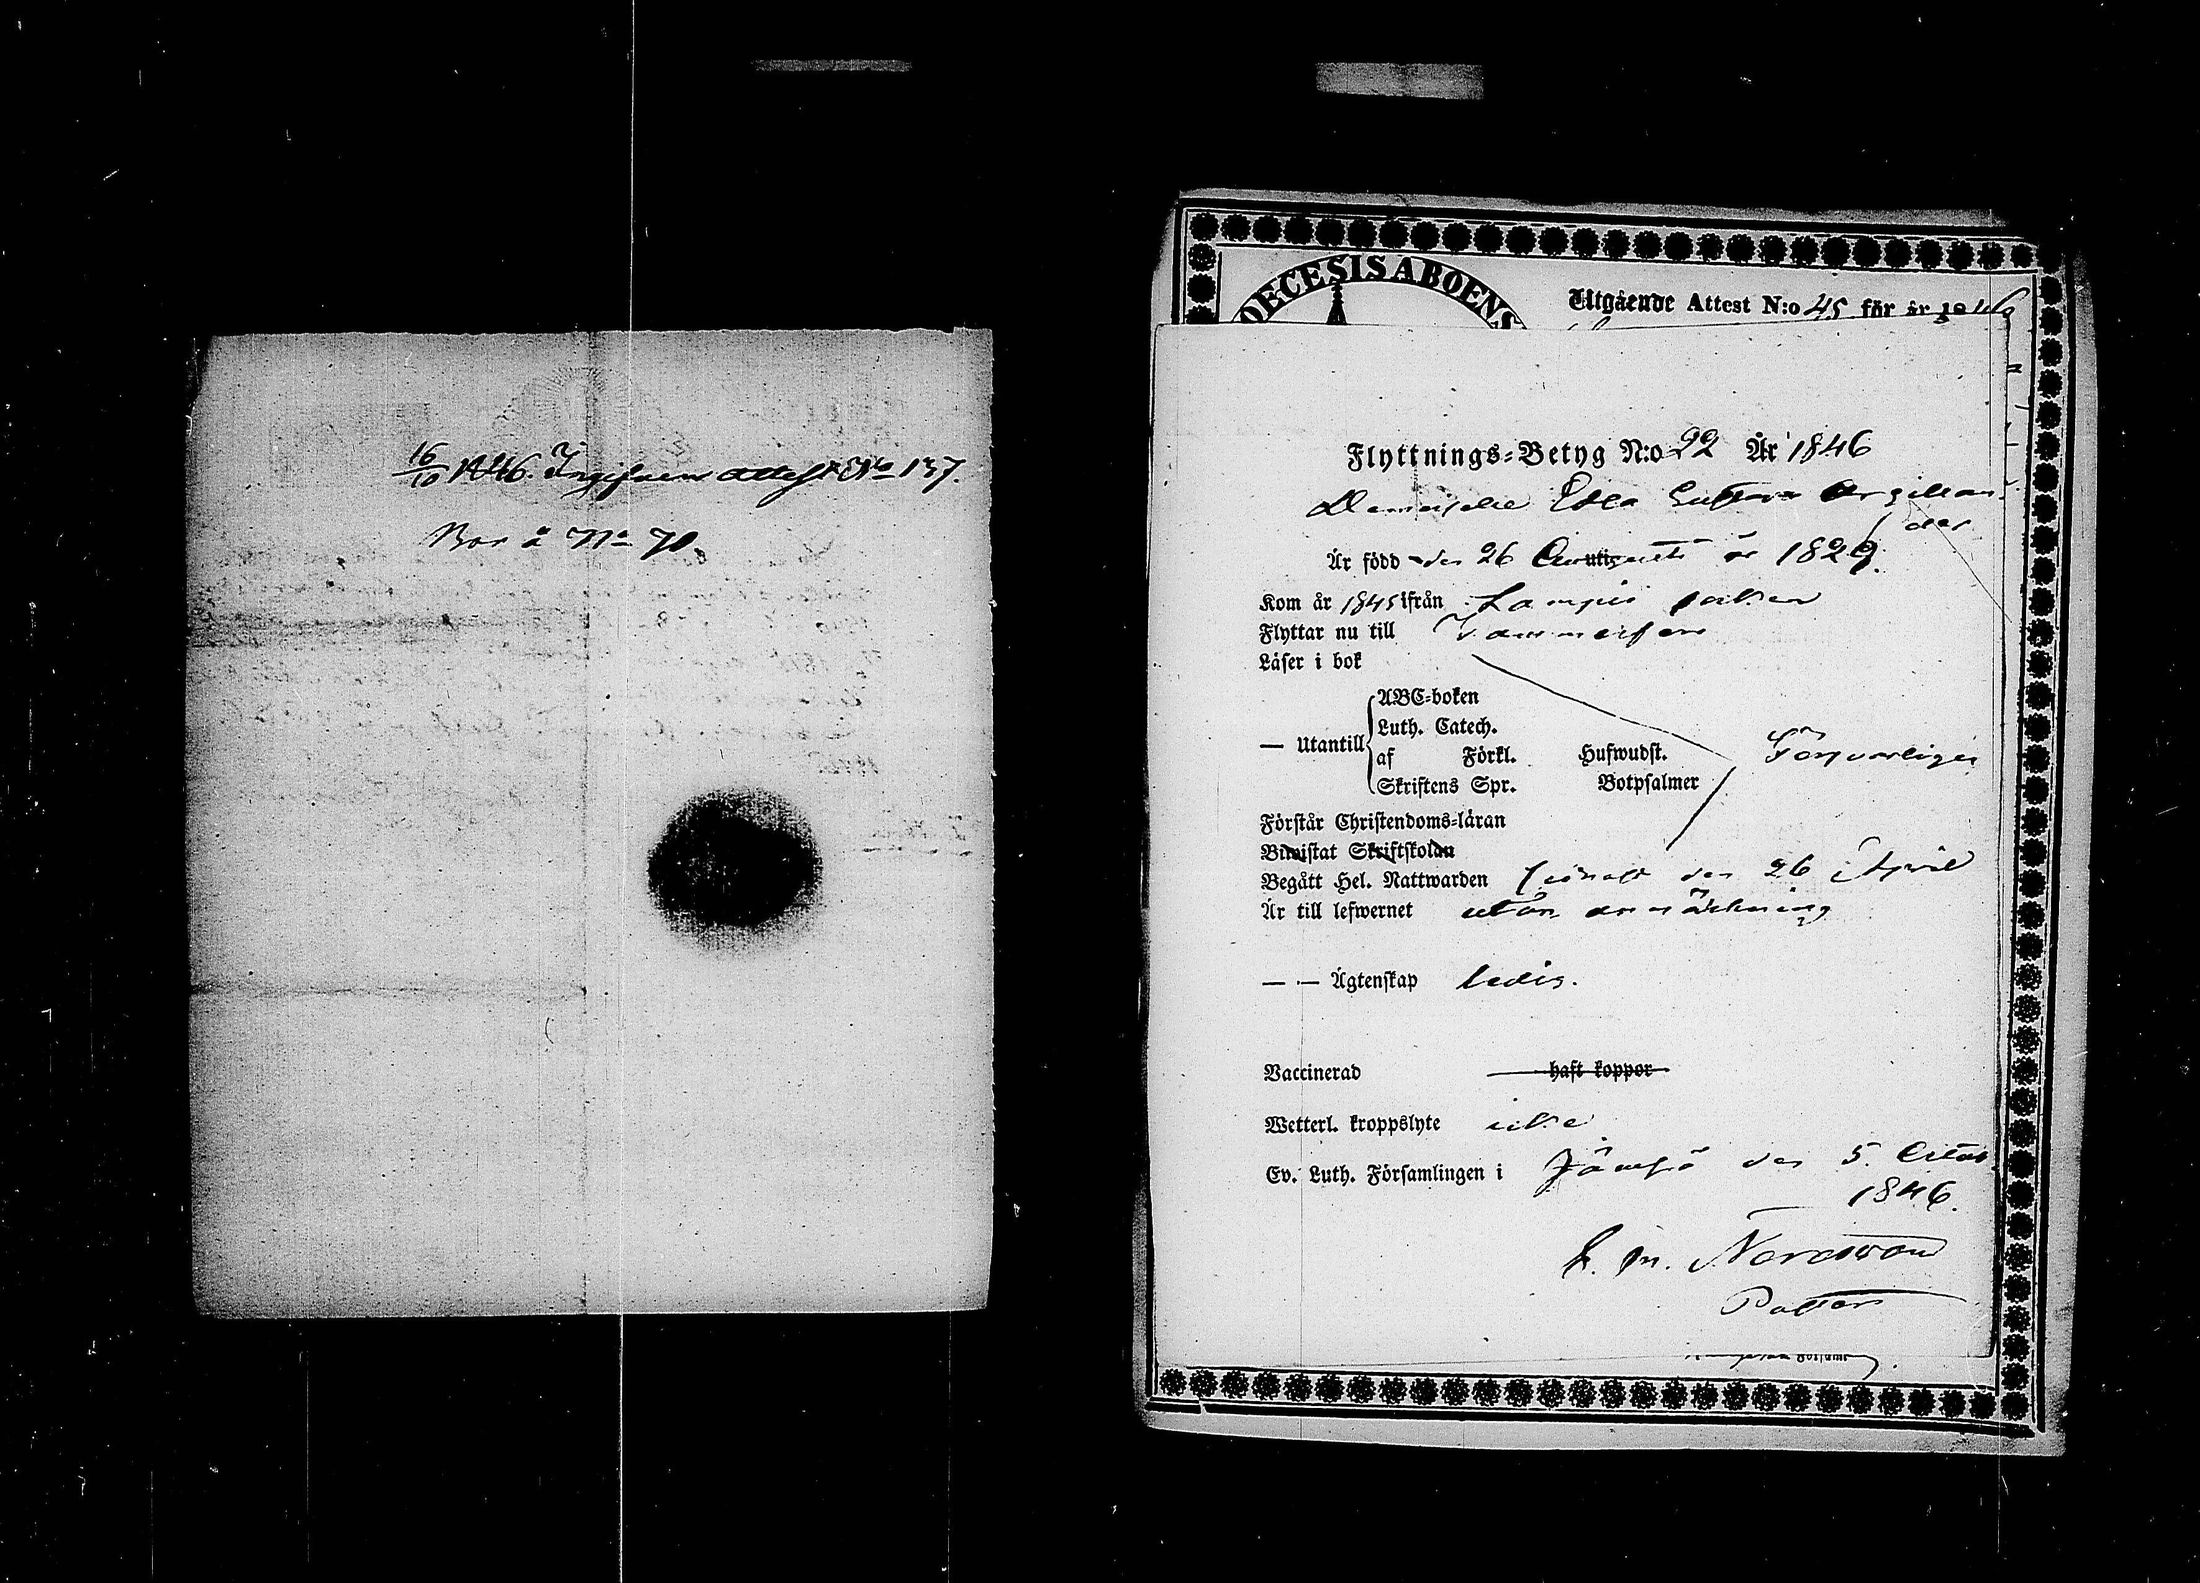 16/10 1846. Ingifven attest No 137.
Bor å No 70.
DECESIS ABOENS
Utgående Attest N:o 45 för år 1846
Flyttnings-Betyg N:o 22 År 1846
Demoiselle Edla Gustava Argillan
der
Är född den 26 Augusti år 1829.
Kom år 1845 ifrån Lampis socken
Flyttar nu till Tammerfors
Läser i bok
ABC-boken
Luth. Catech.
— Utantill af Förkl. Hufwudst. Försvarligen
Skriftens Spr. Botpsalmer
Förstår Christendoms-läran
Biwistat Skriftskolan
Begått Hel. Nattwarden senast den 26 April
Är till lefwernet utan anmärkning
— — Ägtenskap ledig.
Vaccinerad haft koppor
Wetterl. kroppslyte icke
Ev. Luth. Församlingen i Jämsä den 5. Octob.
1846.
E. M. Nordsvan
Pastor